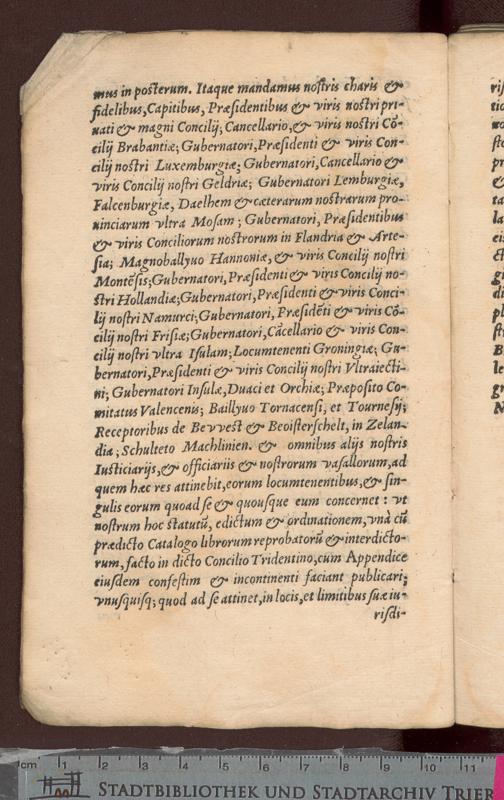 mus in posterum. Itaque mandamus nostris charis &
fidelibus, Capitibus, Præsidentibus & viris nostri pri-
uati & magni Concilij; Cancellario, & viris nostri Cõ-
cilij Brabantiæ; Gubernatori, Præsidenti & viris Con-
cilij nostri Luxemburgiæ, Gubernatori, Cancellario &
viris Concilij nostri Geldriæ; Gubernatori Lemburgiæ,
Falcenburgiæ, Daelhem & cæterarum nostrarum pro-
uinciarum vltra Mosam; Gubernatori, Præsidentibus
& viris Conciliorum nostrorum in Flandria & Arte-
sia; Magnoballyuo Hannoniæ, & viris Concilij nostri
Montẽsis; Gubernatori, Præsidenti & viris Concilij no-
stri Hollandiæ; Gubernatori, Præsidenti & viris Conci-
lij nostri Namurci; Gubernatori, Præsidẽti & viris Cõ-
cilij nostri Frisiæ; Gubernatori, Cãcellario & viris Con-
cilij nostri vltra Isulam; Locumtenenti Groningiæ; Gu-
bernatori, Præsidenti & viris Concilij nostri Vltraiecti-
ni; Gubernatori Insulæ, Duaci et Orchiæ; Præposito Co-
mitatus Valencenis; Baillyuo Tornacensi, et Tournesij;
Receptoribus de Bevvest & Beoisterschelt, in Zelan-
dia; Schulteto Machlinien. & omnibus alijs nostris
Iusticiarijs, & officiariis & nostrorum vasallorum, ad
quem hæc res attinebit, eorum locumtenentibus, & sin-
gulis eorum quoad se & quousque eum concernet: vt
nostrum hoc statutũ, edictum & ordinationem, vnà cũ
prædicto Catalogo librorum reprobatorũ & interdicto-
rum, facto in dicto Concilio Tridentino, cum Appendice
eiusdem confestim & incontinenti faciant publicari;
vnusquisq; quod ad se attinet, in locis, et limitibus suæ iu-
risdi-
cm 1 2 3 4 5 6 7 8 9 10 11
STADTBIBLIOTHEK UND STADTARCHIV TRIER